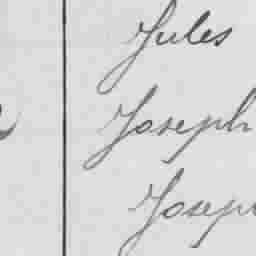 Jules
Joseph
Josep